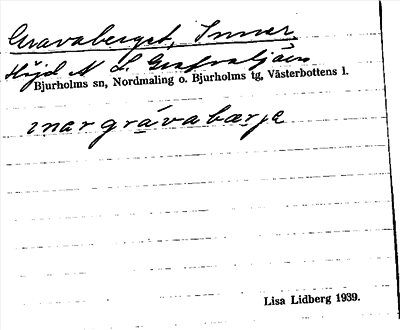 Gravaberget, Inner
Höjd N L. Grafvatjärn
Bjurholms sn, Nordmaling o. Bjurholms tg, Västerbottens l.
inar gràvabærja
Lisa Lidberg 1939.